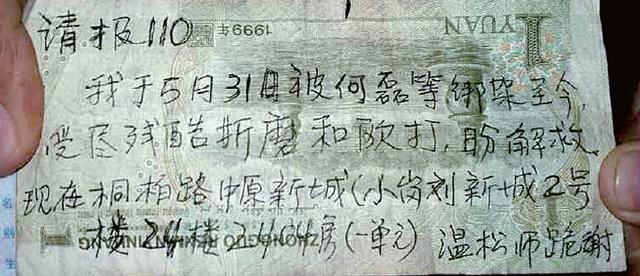 请报110
我于5月31日被何磊等绑架至今,
受尽残酷折磨和殴打,盼解救,
现在桐柏路中原新城(小岗刘新城2号
楼24楼2404房(一单元) 温松师跪谢
1 YUAN
1999年
ZHONGGUO RENMIN YINHANG